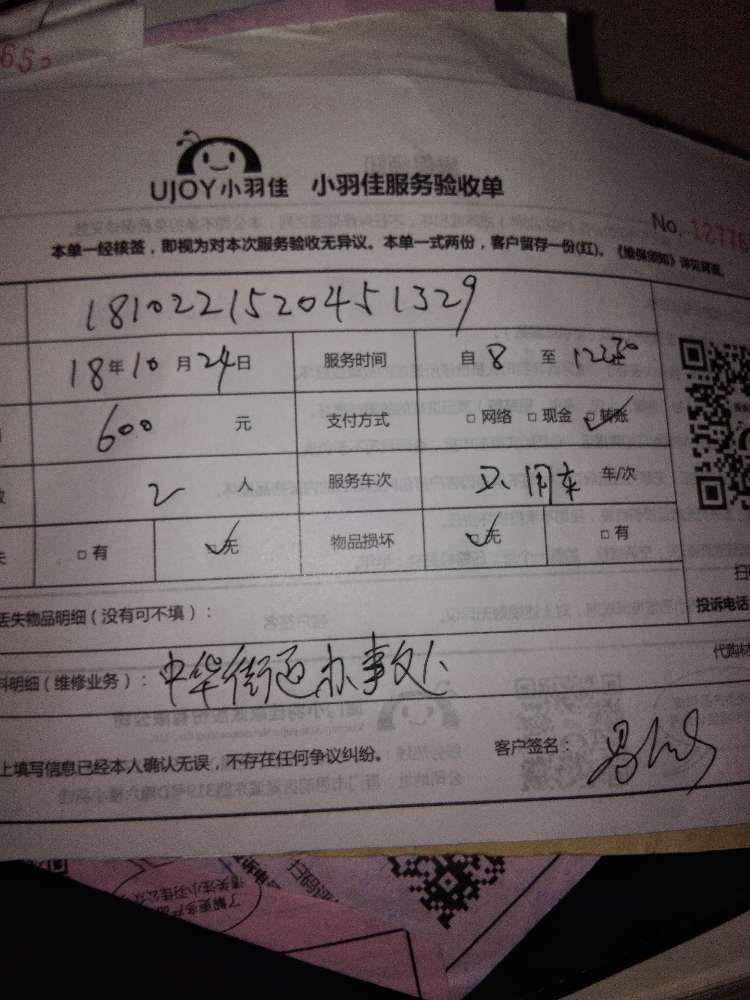 UJOY小羽佳 小羽佳服务验收单
No. 12776
本单一经核签，即视为对本次服务验收无异议。本单一式两份，客户留存一份(红)。《维保须知》详见背面。
1810221520451329
18年10月24日 服务时间 自8至12
600 元 支付方式 □网络 □现金 ☑转账
2 人 服务车次 用车 车/次
□有 ☑无 物品损坏 ☑无 □有
丢失物品明细（没有可不填）：
投诉电话
料明细（维修业务）：中华街道办事处
代购材
上填写信息已经本人确认无误，不存在任何争议纠纷。 客户签名：